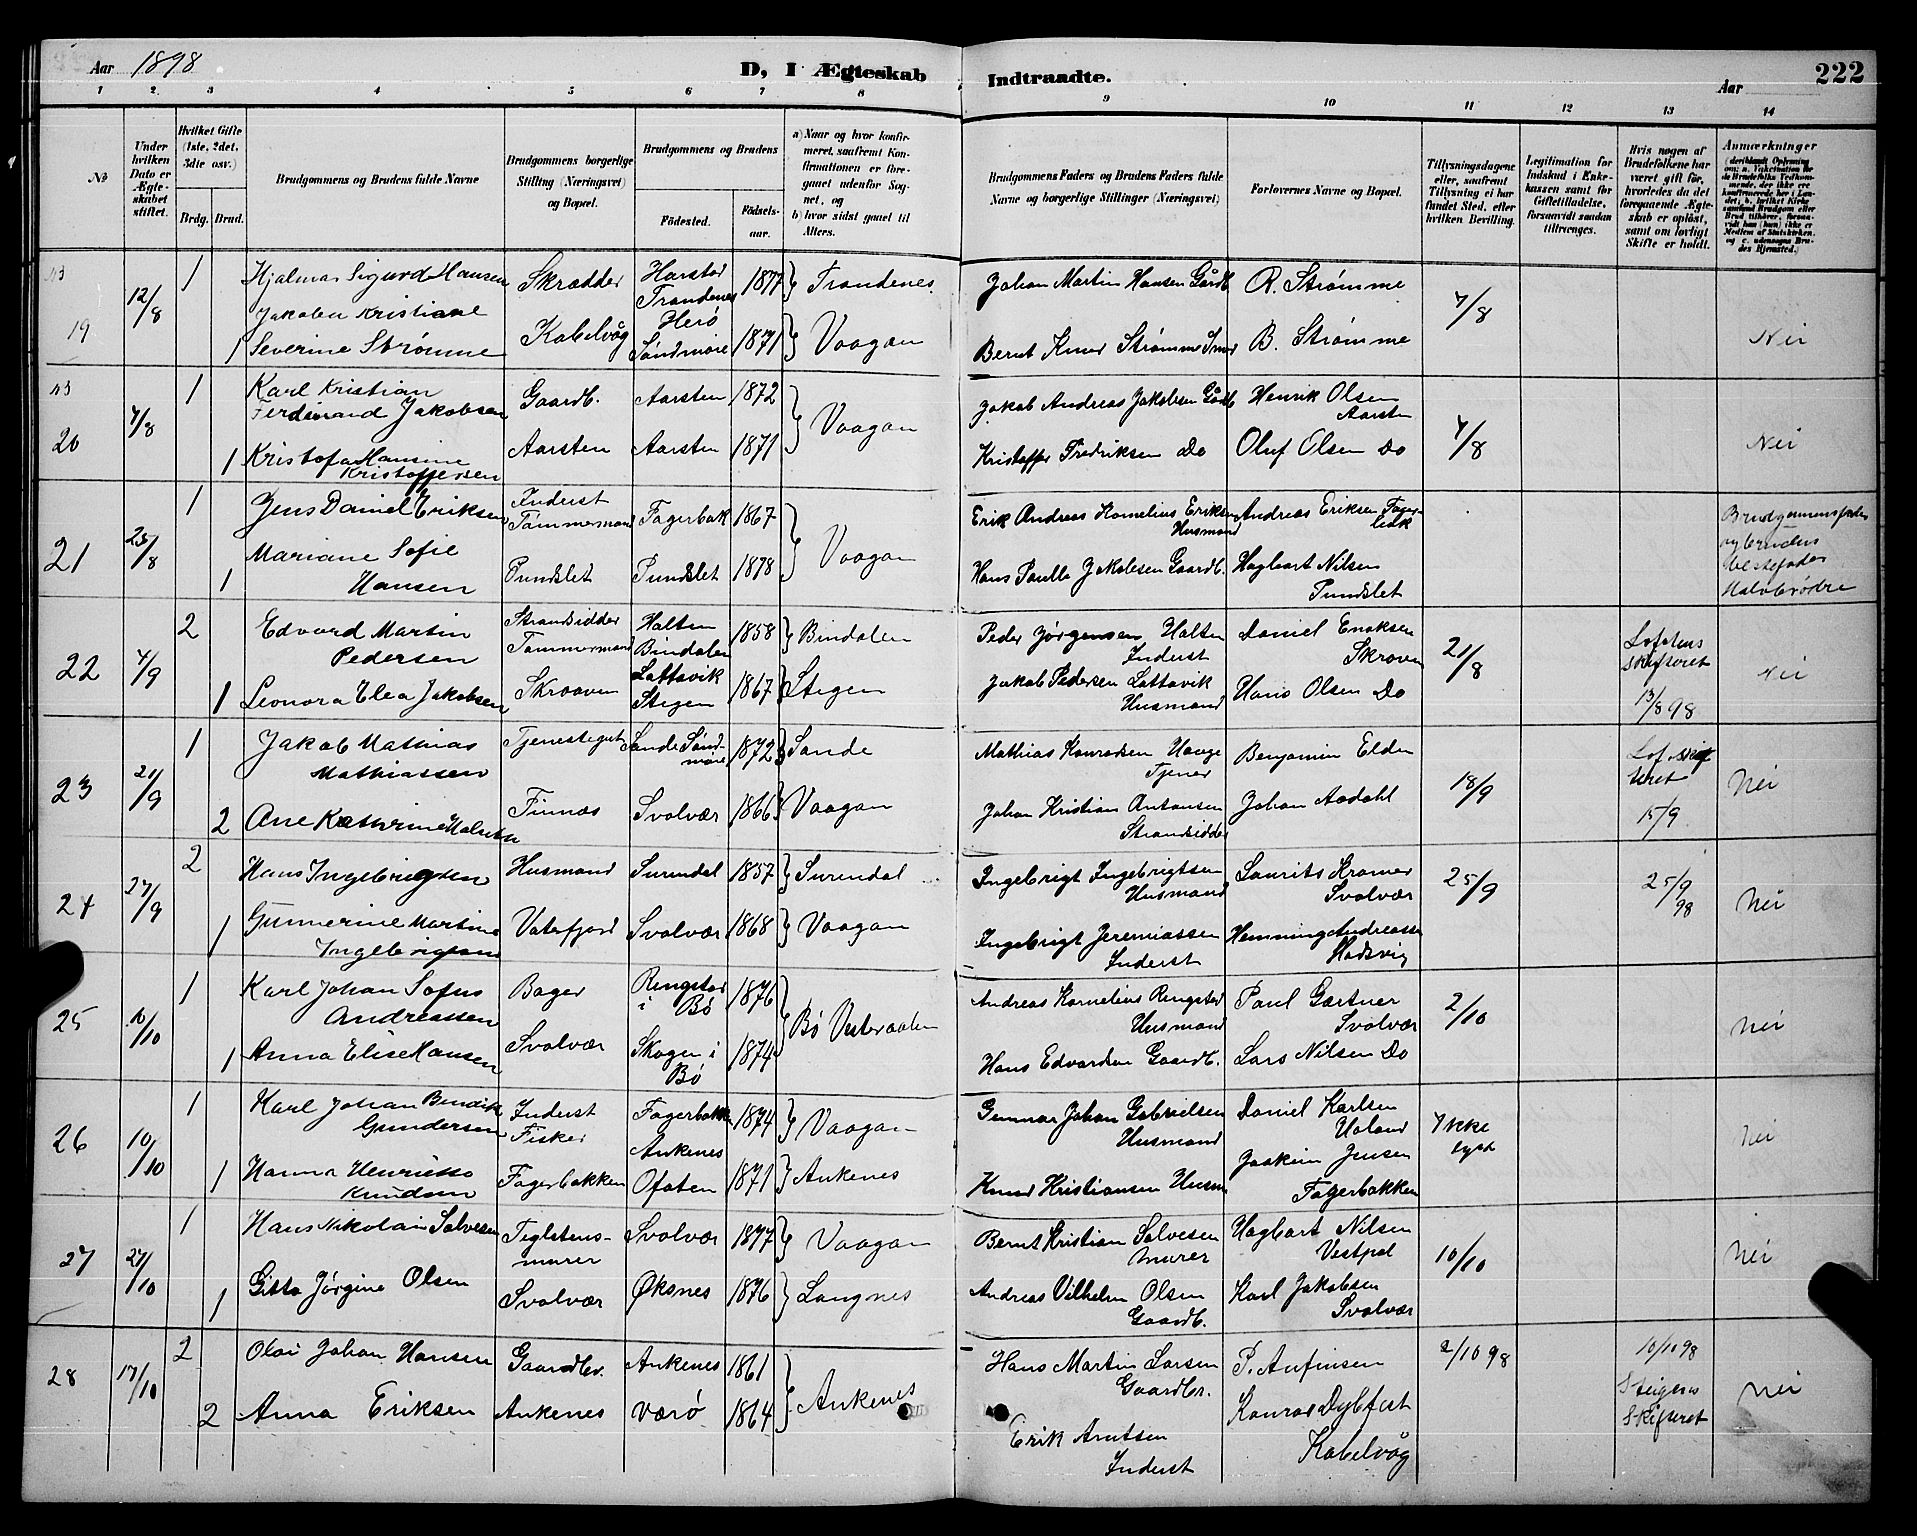 Aar 1898
D, I Ægteskab
Indtraadte.
Aar
222
1 2 3 4 5 6 7 8 9 10 11 12 13 14
No
Under hvilken Dato er Ægteskabet stiftet.
Hvilket Gifte (1ste, 2det, 3die osv.)
Brdg. Brud.
Brudgommens og Brudens fulde Navne
Brudgommens borgerlige Stilling (Næringsvei) og Bopæl.
Brudgommens og Brudens
Fødested.
Fødselsaar.
a) Naar og hvor konfirmeret, saafremt Konfirmationen er foregaaet udenfor Sognet, og
b) hvor sidst gaaet til Alters.
Brudgommens Faders og Brudens Faders fulde Navne og borgerlige Stillinger (Næringsvei)
Forlovernes Navne og Bopæl.
Tillysningsdagene eller, saafremt Tillysning ei har fundet Sted, efter hvilken Bevilling.
Legitimation for Indskud i Enkekassen samt for Giftetilladelse, forsaavidt saadan tiltrænges.
Hvis nogen af Brudefolkene har været gift før, hvorledes da det foregaaende Ægteskab er opløst, samt om lovligt Skifte er holdt.
Anmærkninger
19 12/8 1 Hjalmar Sigurd Hansen Skrædder Harstad Trondenes 1877 Trondenes Johan Martin Hansen Gårdb. R. Strømme 7/8
1 Jakobea Kristiane Severine Strømme Kabelvåg Herø Søndmøre 1871 Vaagan Bernt Knud Strømme Smed B. Strømme Nei
20 7/8 1 Karl Kristian Ferdinand Jakobsen Gaardb. Aarsten 1872 Vaagan Jakob Andreas Jakobsen Gårdb Henrik Olsen Aarsten 7/8
1 Kristofa Hansine Kristoffersen Aarsten Aarsten 1871 Kristoffer Fredriksen Do Oluf Olsen Do Nei
21 25/8 1 Jens Daniel Eriksen Inderst Tømmermand Fagerbak 1867 Vaagan Erik Andreas Kornelius Eriksen Husmand Andreas Eriksen Fagerbak Brudgommens fader og brudens bestefader Halvbrødre
1 Mariane Sofie Hansen Pundslet Pundslet 1878 Hans Paulll Jakobsen Gaardb. Hagbart Nilsen Pundslet
22 4/9 2 Edvard Martin Pedersen Strandsidder Tømmermand Halten Bindalen 1858 Bindalen Peder Jørgensen Halten Inderst Daniel Enoksen Skroven 21/8 Lofotens skifteret 13/8 98
1 Leonora Elea Jakobsen Skroaven Lottavik Stegen 1867 Stegen Jakob Pedersen Lottavik Husmand Hans Olsen Do Nei
23 21/9 1 Jakob Mathias Mathiassen Tjenestegut Sande Søndmøre 1872 Sande Mathias Konradsen Hauge Tjener Benjamin Elden 18/9 Lof. skifteret 15/9
2 Ane Kathrine Finnæs Svolvær 1866 Vaagan Johan Kristian Antonsen Strandsidder Johan Aadahl Nei
24 27/9 2 Hans Ingebrigtsen Husmand Surendal 1857 Surendal Ingebrigt Ingebrigtsen Husmand Laurits Kramer Svolvær 25/9 25/9 98
1 Gunnerine Martine Ingebrigtsen Vaterfjord Svolvær 1868 Vaagan Ingebrigt Jeremiassen Inderst Henning Andreassen Hadsvig Nei
25 10/10 1 Karl Johan Sofus Andreassen Bager Ringstad i Bø 1876 Bø Vesteraalen Andreas Kornelius Ringstad Husmand Paul Gartner Svolvær 2/10
1 Anna Elise Hansen Svolvær Skagen i Bø 1874 Hans Edvardsen Gaardb. Lars Nilsen Do Nei
26 10/10 1 Karl Johan Bendik Gundersen Inderst Fisker Fagerbakken 1874 Vaagan Gunnar Johan Gabrielsen Husmand Daniel Karlsen Uoland Ikke lyst
1 Hanna Henriette Knudsen Fagerbakken Ankenes Ofoten 1871 Ankenes Knud Kristiansen Husm Joakim Jensen Fagerbakken Nei
27 27/10 1 Hans Nikolai Salvesen Teglstensmurer Svolvær 1877 Vaagan Bernt Kristian Salvesen Murer Hagbart Nilsen Vestpol 10/10
1 Gitta Jørgine Olsen Svolvær Øksnes 1876 Langnes Andreas Vilhelm Olsen Gaardb. Karl Jakobsen Svolvær Nei
28 17/10 2 Olai Johan Hansen Gaardbr. Ankenes 1861 Ankenes Hans Martin Larsen Gaardbr. P. Anfinsen 2/10 98 10/10 98 Steigens Skifteret
2 Anna Eriksen Ankenes Værø 1864 Erik Arntsen Inderst Konrad Dybfest Kabelvåg Nei